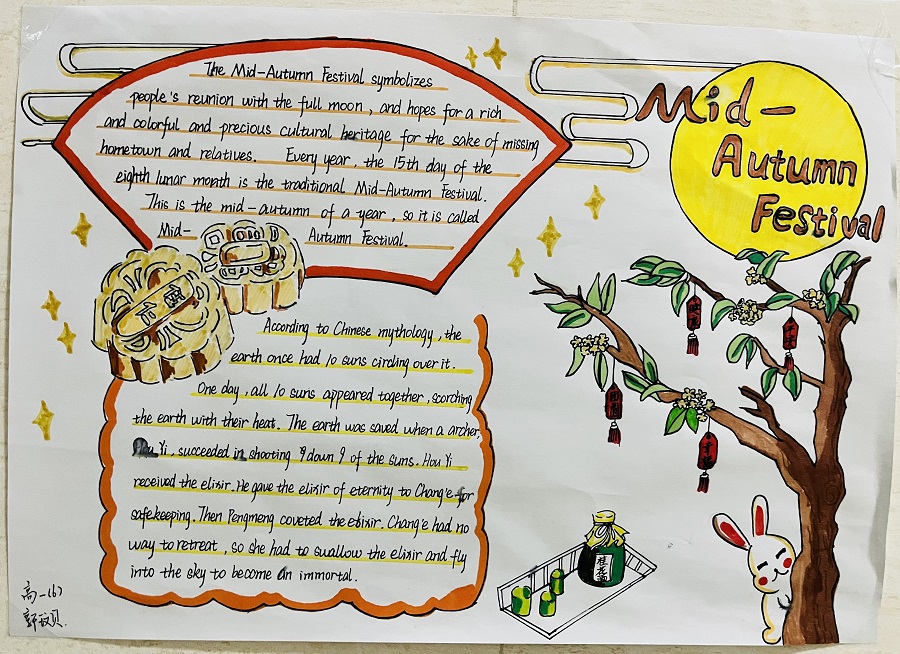 The Mid-Autumn Festival symbolizes
people's reunion with the full moon, and hopes for a rich
and colorful and precious cultural heritage for the sake of missing
hometown and relatives. Every year, the 15th day of the
eighth lunar month is the traditional Mid-Autumn Festival.
This is the mid-autumn of a year, so it is called
Mid- Autumn Festival.
Mid-
Autumn
Festival
According to Chinese mythology, the
earth once had 10 suns circling over it.
One day, all 10 suns appeared together, scorching
the earth with their heat. The earth was saved when a archer,
Hou Yi, succeeded in shooting 9 down 9 of the suns. Hou Yi
received the elixir. He gave the elixir of eternity to Chang'e for
safekeeping. Then Pengmeng coveted the elixir. Chang'e had no
way to retreat, so she had to swallow the elixir and fly
into the sky to become an immortal.
团圆
幸福
桂花酒
高一(6)